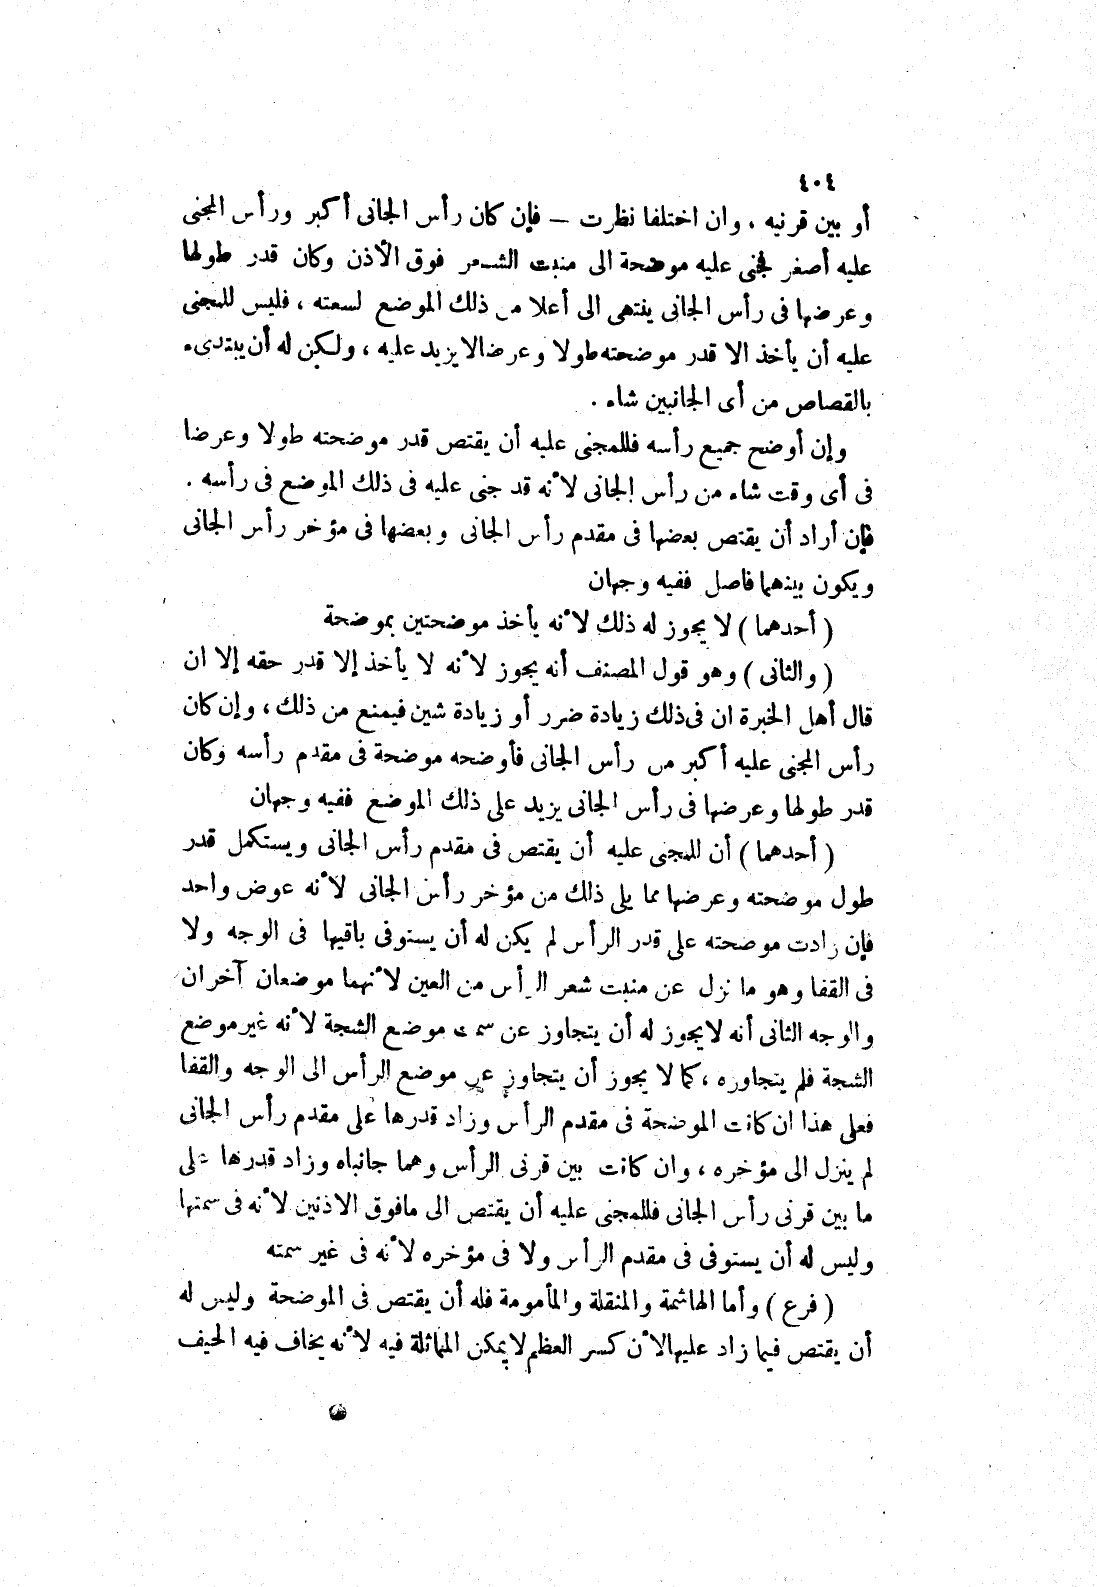 ٤٠٤
أو بين قرنيه ، وان اختلفا نظرت — فإن كان رأس الجانى أكبر ورأس المجنى
عليه أصغر فجنى عليه موضحة الى منبت الشعر فوق الأذن وكان قدر طولها
وعرضها فى رأس الجانى ينتهى الى أعلا من ذلك الموضع لسعته ، فليس للمجنى
عليه أن يأخذ الا قدر موضحته طولا وعرضا لا يزيد عليه ، ولكن له أن يبتدىء
بالقصاص من أى الجانبين شاء .
وإن أوضح جميع رأسه فللمجنى عليه أن يقتص قدر موضحته طولا وعرضا
فى أى وقت شاء من رأس الجانى لأنه قد جنى عليه فى ذلك الموضع فى رأسه .
فإن أراد أن يقتص بعضها فى مقدم رأس الجانى وبعضها فى مؤخر رأس الجانى
ويكون بينهما فاصل ففيه وجهان
( أحدهما ) لا يجوز له ذلك لأنه يأخذ موضحتين بموضحة
( والثانى ) وهو قول المصنف أنه يجوز لأنه لا يأخذ إلا قدر حقه إلا ان
قال أهل الخبرة ان فى ذلك زيادة ضرر أو زيادة شين فيمنع من ذلك ، وإن كان
رأس المجنى عليه أكبر من رأس الجانى فأوضحه موضحة فى مقدم رأسه وكان
قدر طولها وعرضها فى رأس الجانى يزيد على ذلك الموضع ففيه وجهان
( أحدهما ) أن للمجنى عليه أن يقتص فى مقدم رأس الجانى ويستكمل قدر
طول موضحته وعرضها مما يلى ذلك من مؤخر رأس الجانى لأنه عوض واحد
فإن زادت موضحته على قدر الرأس لم يكن له أن يستوفى باقيها فى الوجه ولا
فى القفا وهو ما نزل عن منبت شعر الرأس من العين لأنهما موضعان آخران
والوجه الثانى أنه لا يجوز له أن يتجاوز عن سمت موضع الشجة لأنه غير موضع
الشجة فلم يتجاوره ، كما لا يجوز أن يتجاوز عن موضع الرأس الى الوجه والقفا
فعلى هذا ان كانت الموضحة فى مقدم الرأس وزاد قدرها على مقدم رأس الجانى
لم ينزل الى مؤخره ، وان كانت بين قرنى الرأس وهما جانباه وزاد قدرها على
ما بين قرنى رأس الجانى فللمجنى عليه أن يقتص الى مافوق الاذنين لأنه فى سمتها
وليس له أن يستوفى فى مقدم الرأس ولا فى مؤخره لأنه فى غير سمته
( فرع ) وأما الهاشمة والمنقلة والمأمومة فله أن يقتص فى الموضحة وليس له
أن يقتص فيما زاد عليها لأن كسر العظم لا يمكن المماثلة فيه لأنه يخاف فيه الحيف